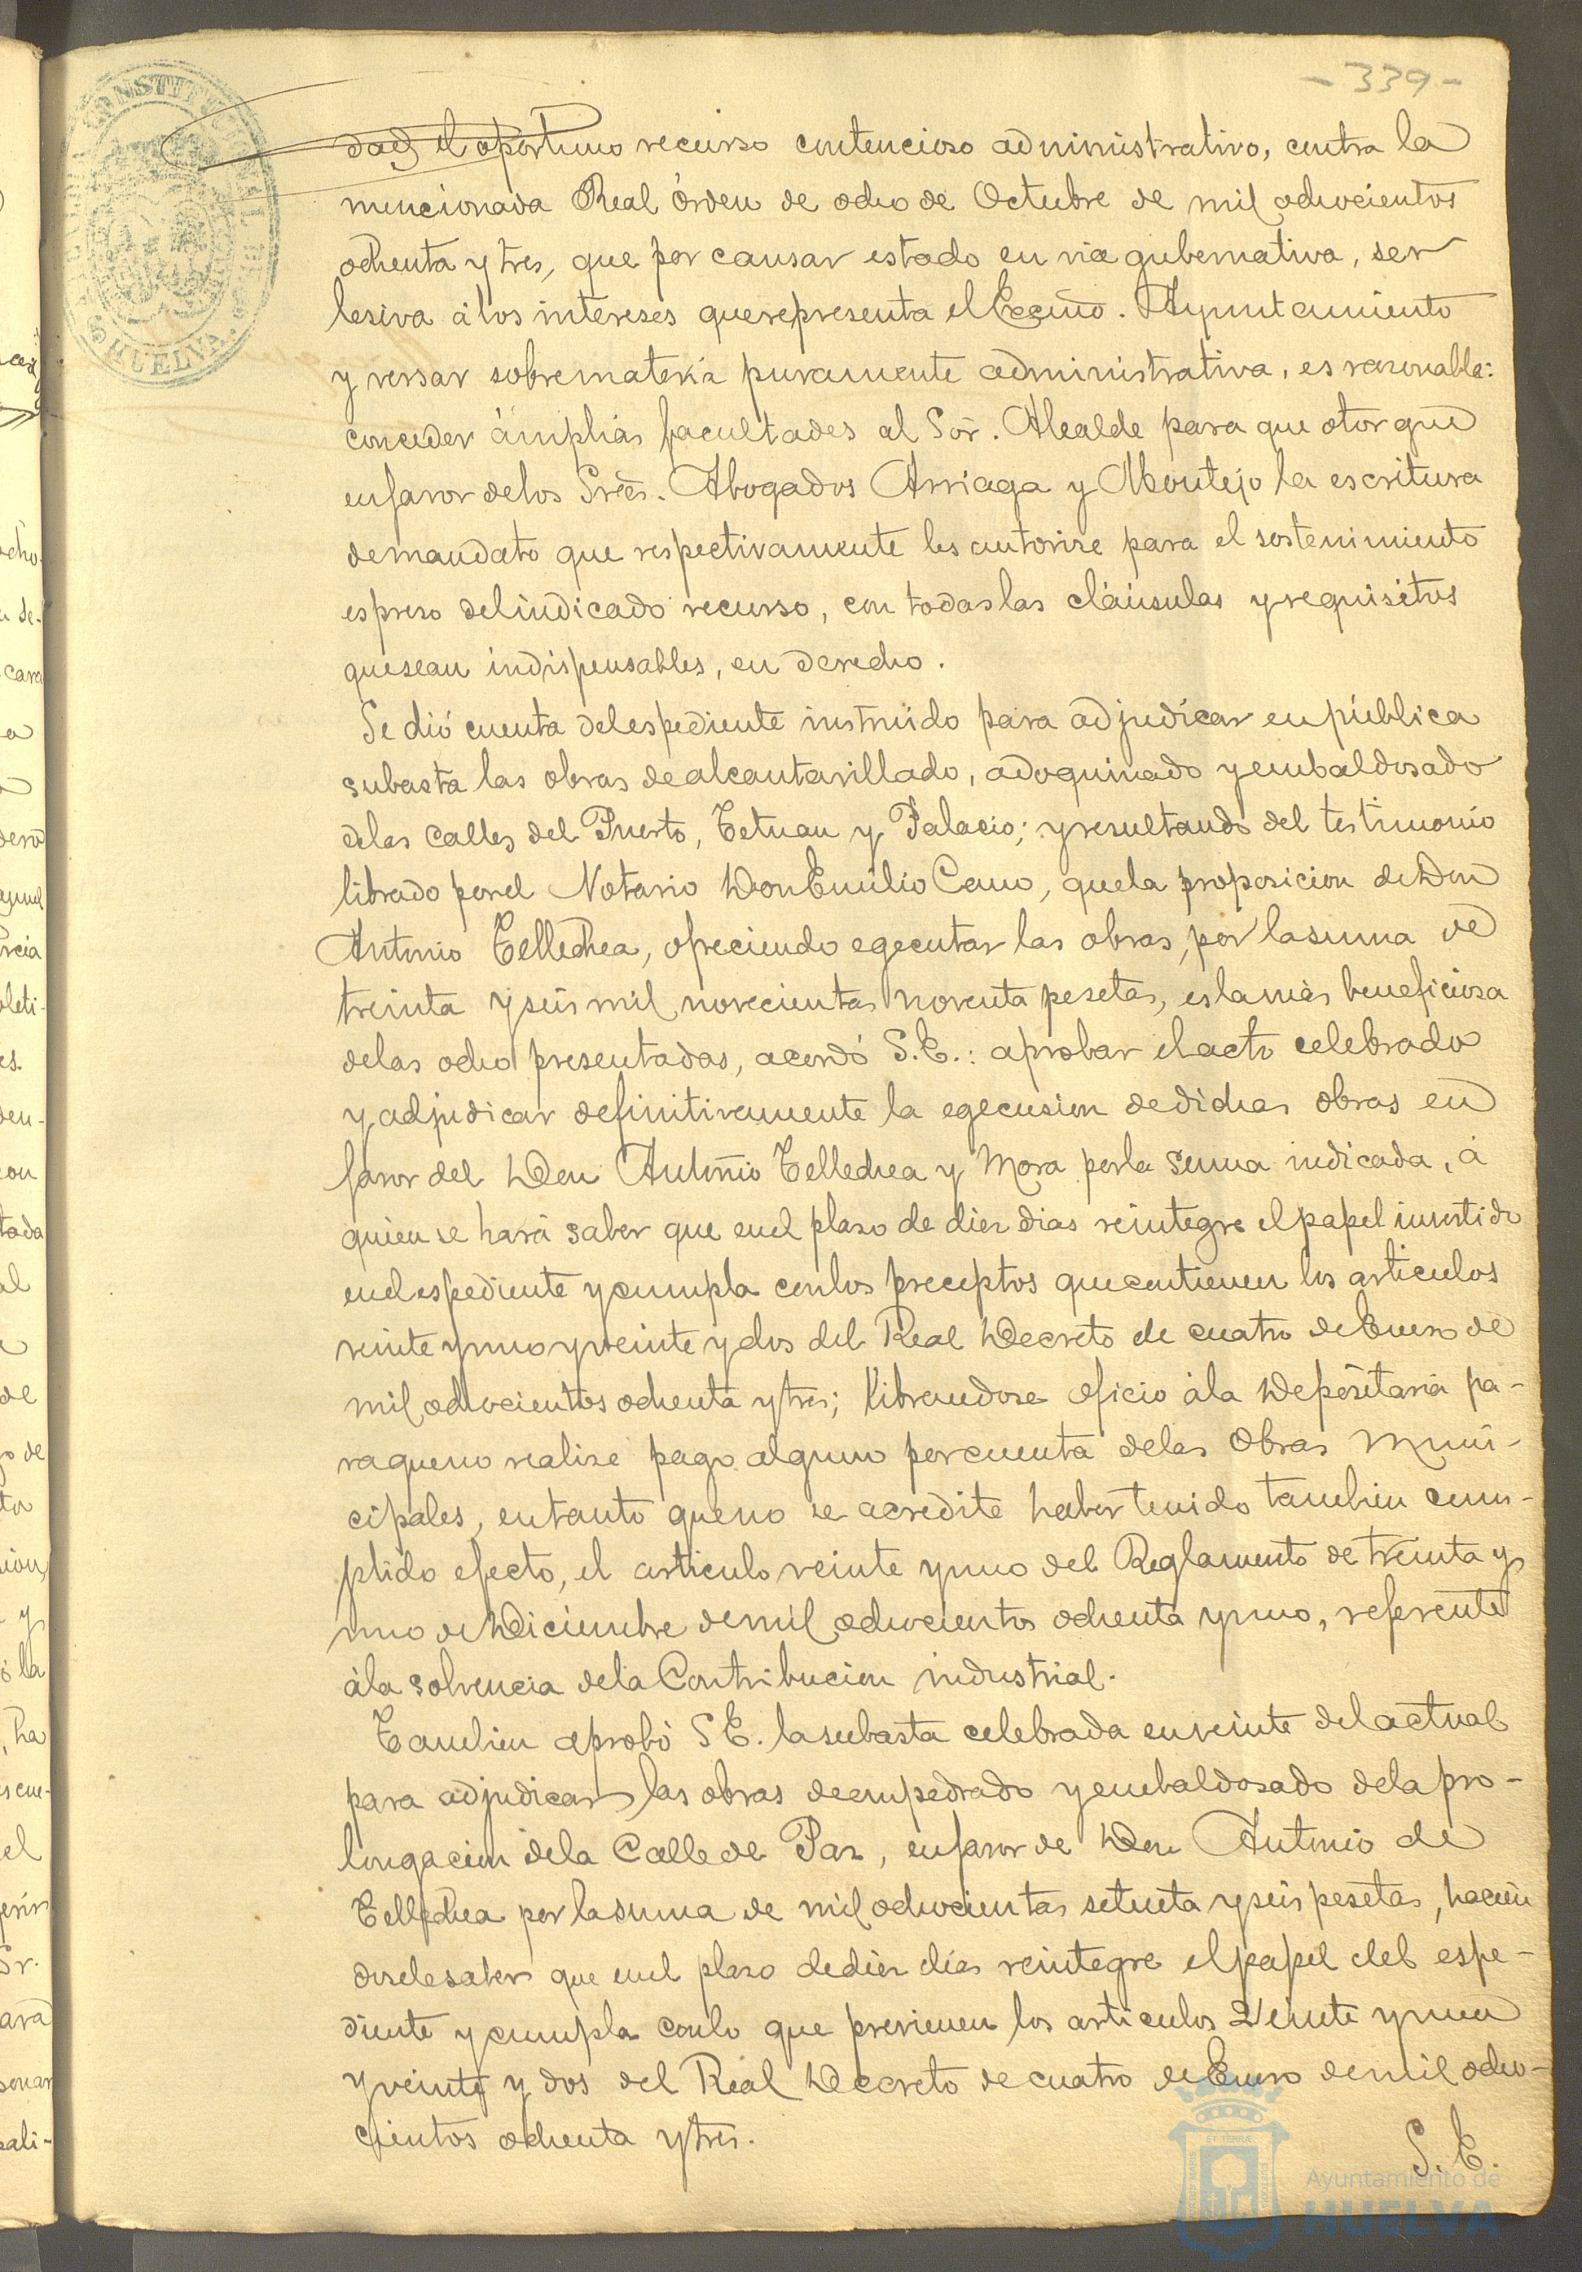 -339-
dad el oportuno recurso contencioso administrativo, contra la
mencionada Real órden de ocho de Octubre de mil ochocientos
ochenta y tres, que por causar estado en via gubernativa, ser
lesiva á los intereses que representa el Excmo. Ayuntamiento
y versar sobre materia puramente administrativa, es razonable:
conceder ámplias facultades al Sor. Alcalde para que otorgue
en favor de los Sres. Abogados Arriaga y Montejo la escritura
de mandato que respectivamente les autorise para el sostenimiento
espreso del indicado recurso, con todas las cláusulas y requisitos
que sean indispensables, en derecho.
Se dió cuenta del espediente instruido para adjudicar en pública
subasta las obras de alcantarillado, adoquinado y embaldosado
de las calles del Puerto, Tetuan y Palacio; y resultando del testimonio
librado por el Notario Don Emilio Cano, que la proposicion de Don
Antonio Telledhea, ofreciendo egecutar las obras, por la suma de
treinta y seis mil novecientas noventa pesetas, es la más beneficiosa
de las ocho presentadas, acordó S.E.: aprobar el acto celebrado
y adjudicar definitivamente la egecusion de dichas obras en
favor del Don Antonio Tellechea y Mora por la suma indicada, á
quien se hará saber que en el plazo de diez dias reintegre el papel invertido
en el espediente y cumpla con los preceptos que contienen los articulos
veinte y uno y veinte y dos del Real Decreto de cuatro de Enero de
mil ochocientos ochenta y tres; librandose oficio á la Depositaria pa-
ra que no realize pago alguno por cuenta de las obras Muni-
cipales, en tanto que no se acredite haber tenido tambien cum-
plido efecto, el articulo veinte y uno del Reglamento de treinta y
uno de Diciembre de mil ochocientos ochenta y uno, referente
á la solvencia de la Contribucion industrial.
Tambien aprobó S E. la subasta celebrada en veinte del actual
para adjudicar las obras de empedrado y embaldosado de la pro-
longacion de la Calle de Paz, en favor de Don Antonio de
Telledhea por la suma de mil ochocientas setenta y seis pesetas, hacien
dosele saber que en el plazo de diez dias reintegre el papel del espe-
diente y cumpla con lo que previenen los articulos Veinte y uno
y veinte y dos del Real Decreto de cuatro de Enero de mil ocho-
cientos ochenta y tres.
S. E.
CONSTITUCIONAL
HUELVA
Ayuntamiento de
HUELVA